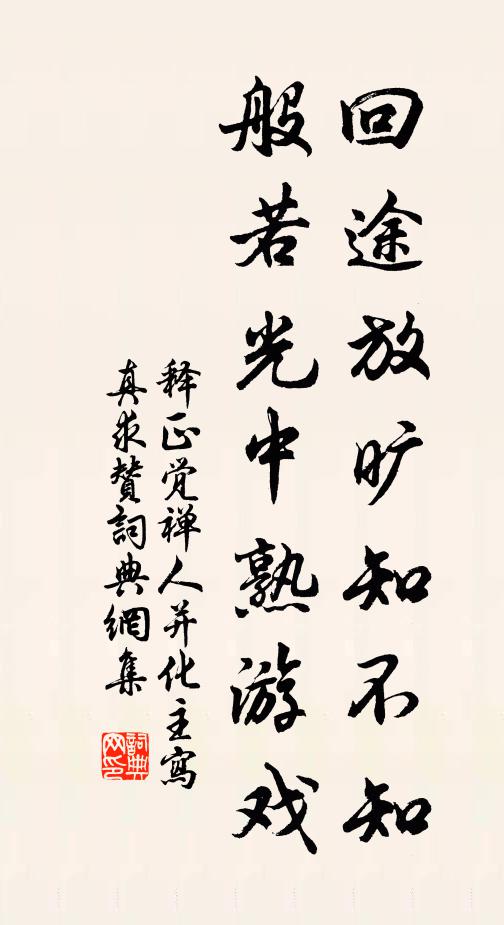 回途放旷知不知
般若光中熟游戏
释正觉禅人并化主寫
真求贊詞典網集
詞典网印